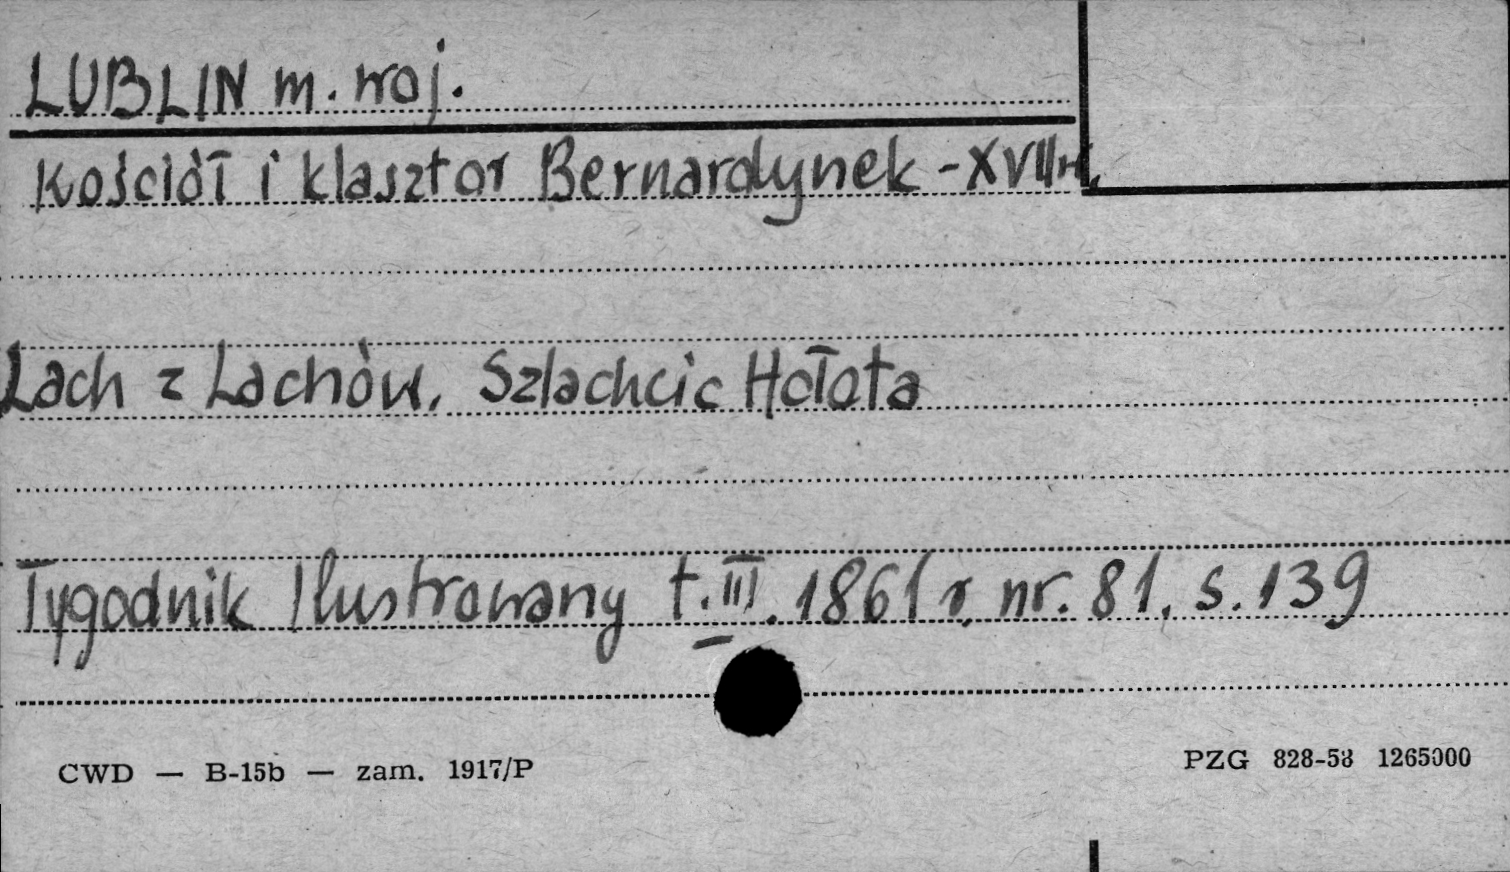 LUBLIN m. woj.
Kościół i klasztor Bernardynek - XVII w.
Lach z Lachów. Szlachcic Hołota
Tygodnik Ilustrowany t. III. 1861 r. nr. 81. s. 139
CWD — B-15b — zam. 1917/P
PZG 828-58 1265000